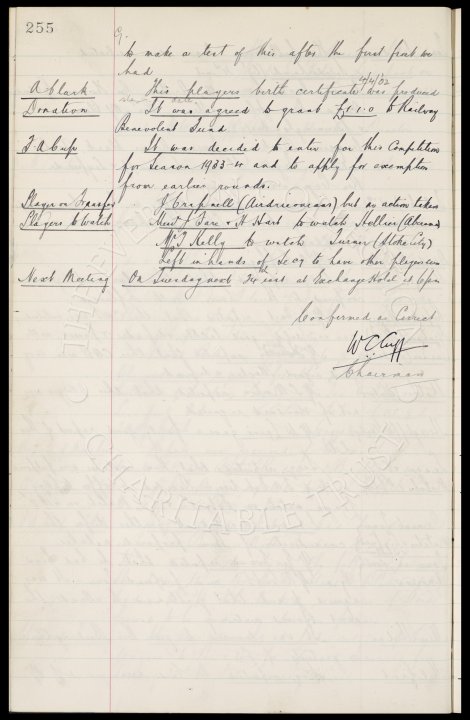 255
to make a test of this after the first frost we
had.
A Clark This players birth certificate 4/4/02 was produced
Donation It was agreed to grant £1.1.0 to Railway
Benevolent Fund.
F A Cup It was decided to enter for this Competition
for Season 1933-4 and to apply for exemption
from earlier rounds.
Player on Transfer (Airdrieonians) but no action taken
Players to Watch Messrs & A Hart to watch
Mr J Kelly to watch Turner (Stoke City)
Left in hands of Secy to have other players seen
Next Meeting On Tuesday next inst at Exchange Hotel at 6pm
Confirmed as Correct
W C Cuff
Chairman
CHARITABLE TRUST